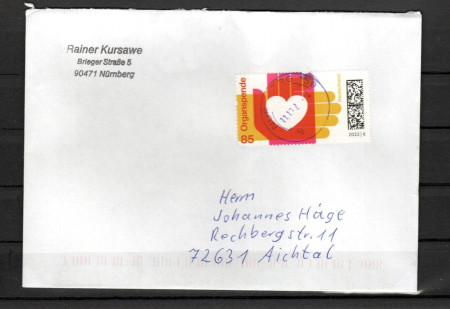 Rainer Kursawe
Brieger Straße 5
90471 Nürnberg
Organspende
85
Deutschland
2022 | €
Herrn
Johannes Häge
Rechbergstr. 11
72631 Aichtal